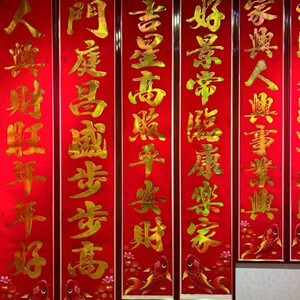 家興人興事業興
好景常臨康樂家
吉星高照平安財
門庭昌盛步步高
人興財旺年年好